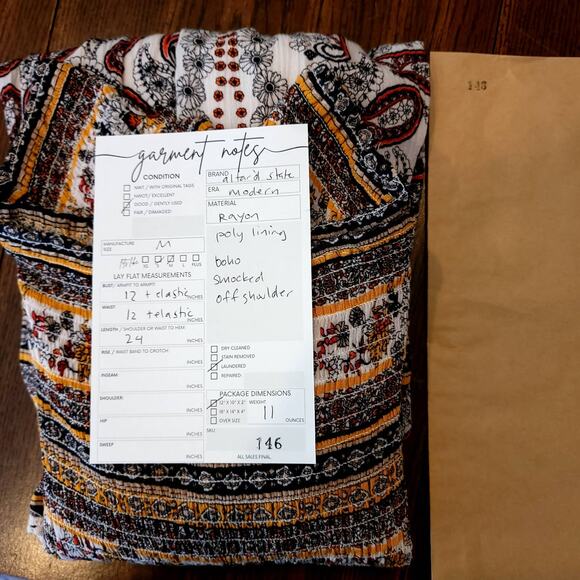 garment notes
CONDITION
NWT / WITH ORIGINAL TAGS
NWOT / EXCELLENT
GOOD / GENTLY USED
FAIR / DAMAGED
MANUFACTURE SIZE M
XS S M L PLUS
LAY FLAT MEASUREMENTS
BUST / ARMPIT TO ARMPIT:
12 + elastic INCHES
WAIST:
12 + elastic INCHES
LENGTH / SHOULDER OR WAIST TO HEM:
24 INCHES
RISE / WAIST BAND TO CROTCH:
INCHES
INSEAM:
INCHES
SHOULDER:
INCHES
HIP
INCHES
SWEEP
INCHES
BRAND altar'd state
ERA modern
MATERIAL
Rayon
poly lining
boho
smocked
off shoulder
DRY CLEANED
STAIN REMOVED
LAUNDERED
REPAIRED
PACKAGE DIMENSIONS
12" X 10" X 2" WEIGHT
18" X 14" X 4" 11
OVER SIZE OUNCES
SKU
146
ALL SALES FINAL
146